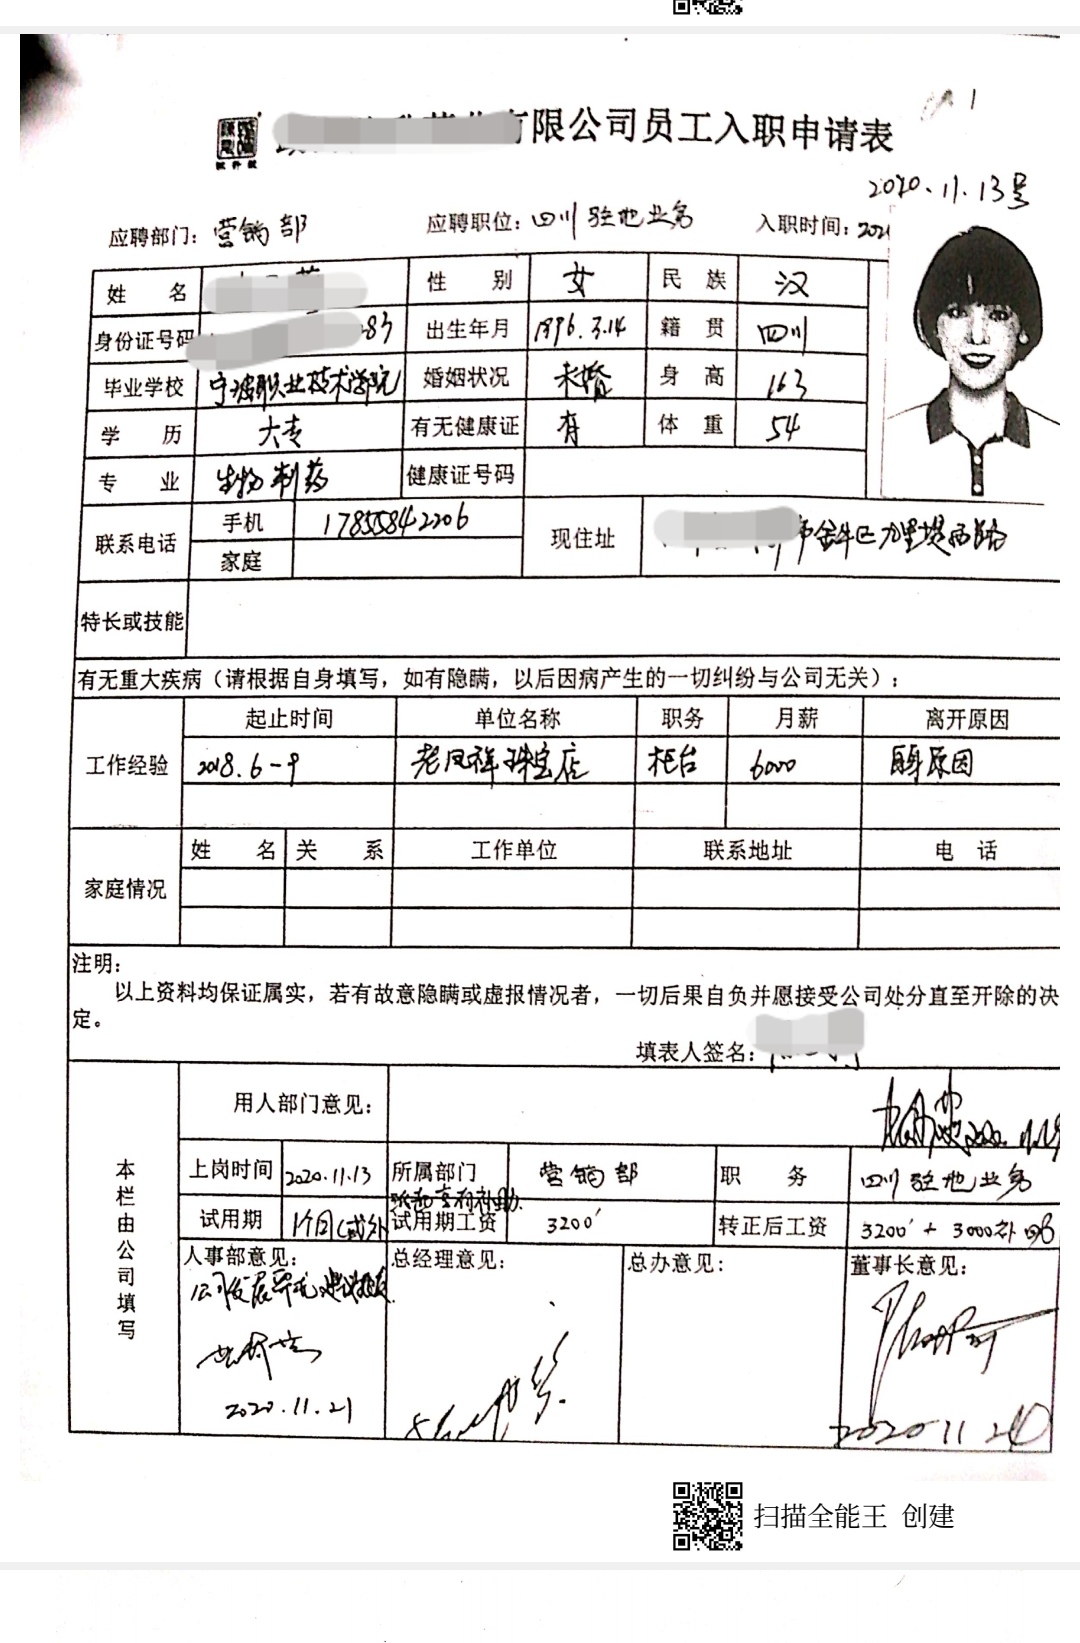 有限公司员工入职申请表
2020.11.13号
应聘部门：营销部 应聘职位：四川驻地业务 入职时间：202
姓 名 性 别 女 民 族 汉
身份证号码 83 出生年月 1996.3.14 籍 贯 四川
毕业学校 宁波职业技术学院 婚姻状况 未婚 身 高 163
学 历 大专 有无健康证 有 体 重 54
专 业 生物制药 健康证号码
联系电话 手机 17855842206 现住址 市金牛区九里堤西路
家庭
特长或技能
有无重大疾病（请根据自身填写，如有隐瞒，以后因病产生的一切纠纷与公司无关）：
工作经验 起止时间 单位名称 职务 月薪 离开原因
2018.6-9 老凤祥珠宝店 柜台 6000 原因
家庭情况 姓 名 关 系 工作单位 联系地址 电 话
注明：
以上资料均保证属实，若有故意隐瞒或虚报情况者，一切后果自负并愿接受公司处分直至开除的决
定。
填表人签名：
本栏由公司填写
用人部门意见：
上岗时间 2020.11.13 所属部门 营销部 职 务 四川驻地业务
试用期 1个月 试用期工资 3200 转正后工资 3200 + 3000补
人事部意见： 总经理意见： 总办意见： 董事长意见：
公司发展
2020.11.21
2020 11 2
扫描全能王 创建